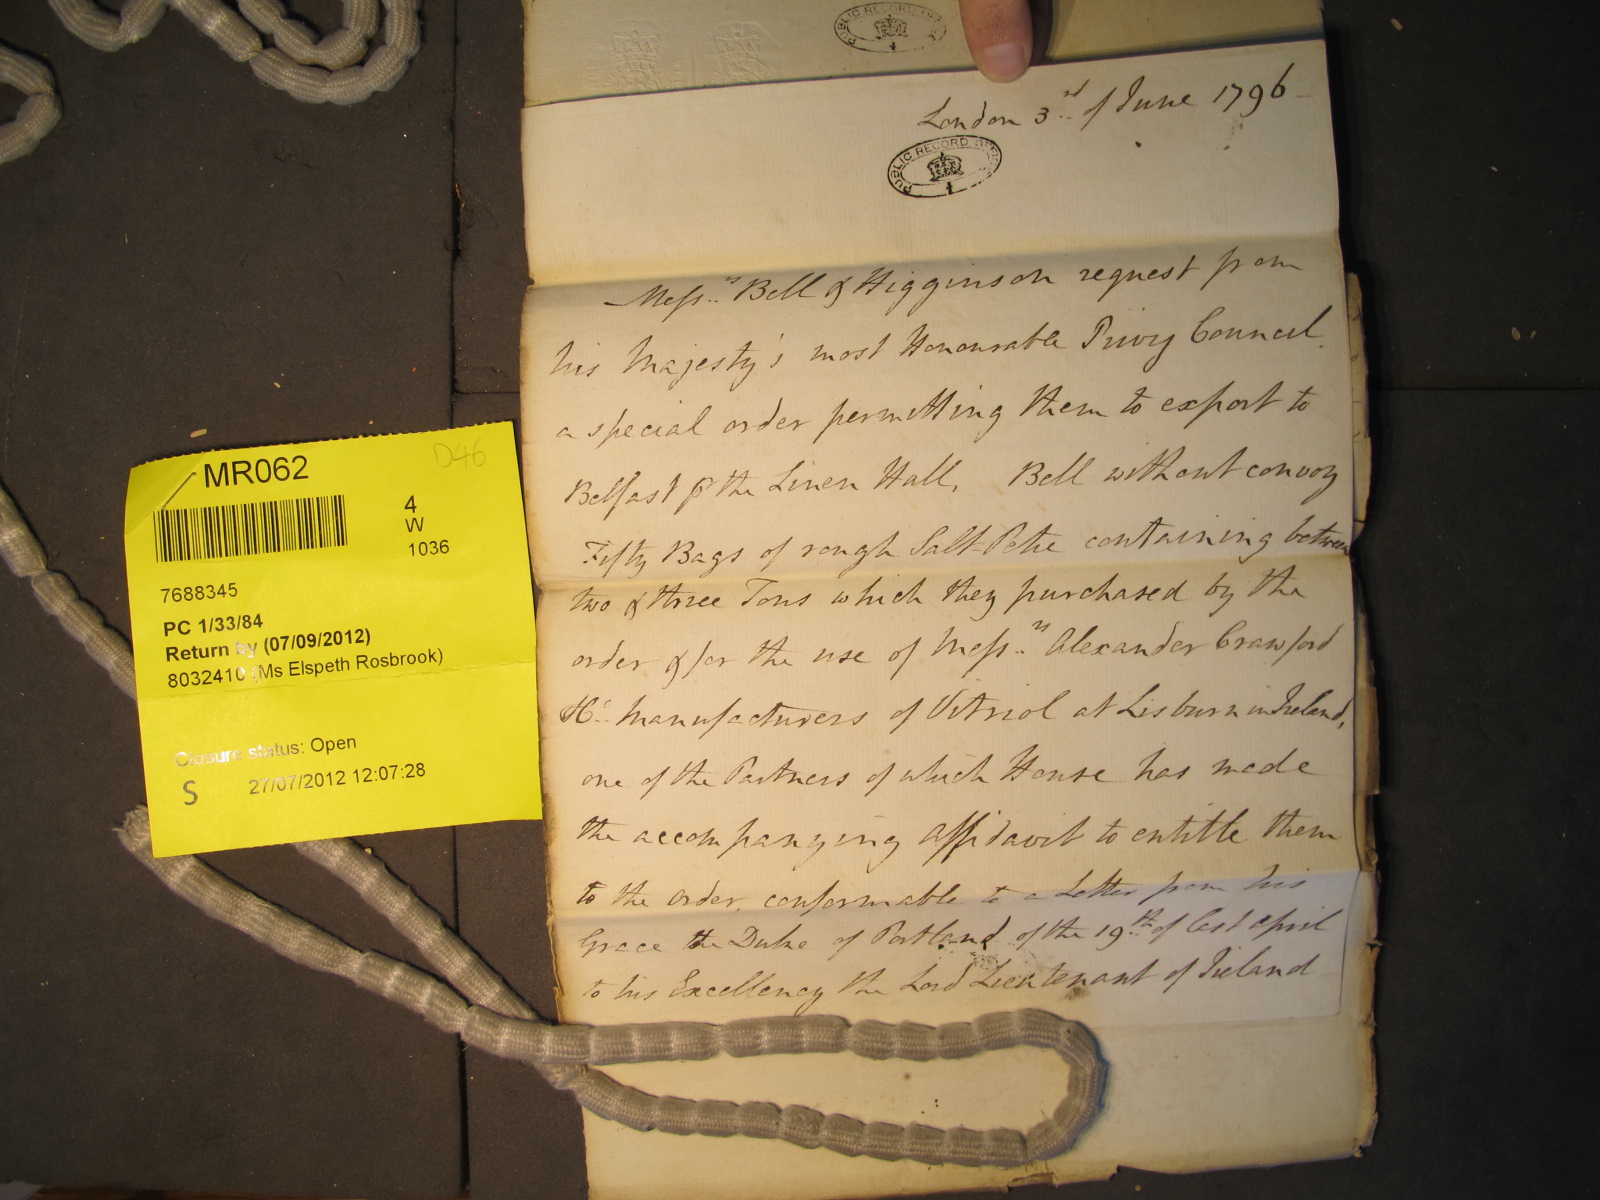 PUBLIC RECORD OFFICE
London 3rd of June 1796
PUBLIC RECORD OFFICE
Messrs Bell & Higginson request from
his Majesty's most Honourable Privy Council
a special order permitting them to export to
Belfast p the Linen Hall, Bell without convoy
Fifty Bags of rough Salt-Petre containing between
two & three Tons which they purchased by the
order & for the use of Messrs Alexander Crawford
& Co manufacturers of Vitriol at Lisburn in Ireland,
one of the Partners of which House has made
the accompanying affidavit to entitle them
to the order, conformable to a Letter from his
Grace the Duke of Portland of the 19th of last April
to his Excellency the Lord Lieutenant of Ireland
MR062
D46
4
W
1036
7688345
PC 1/33/84
Return by (07/09/2012)
8032410 (Ms Elspeth Rosbrook)
Closure status: Open
S 27/07/2012 12:07:28